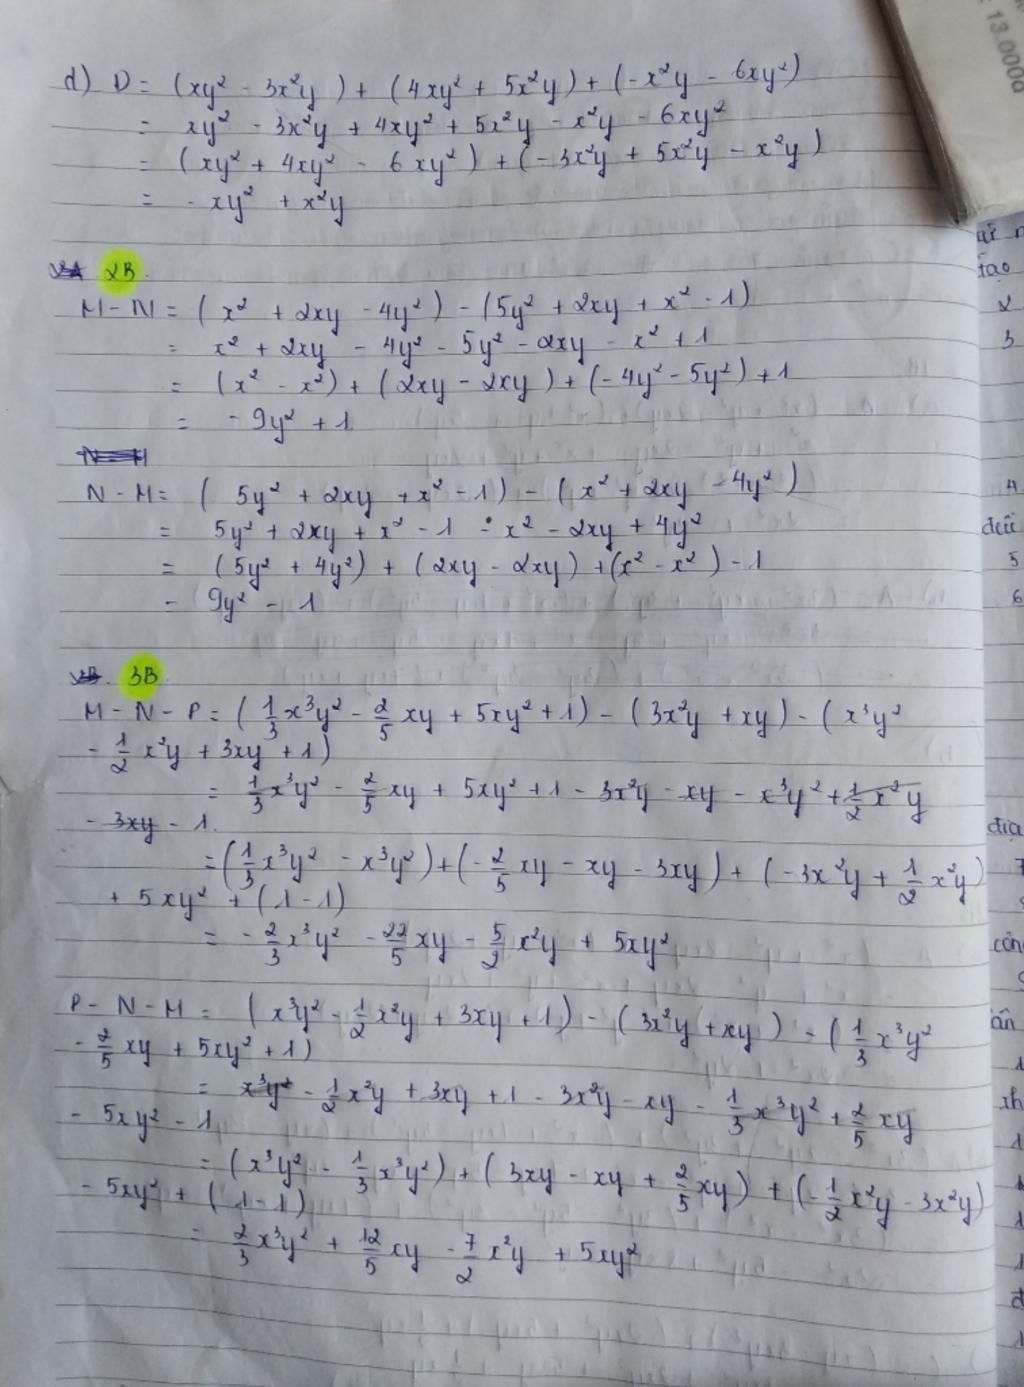 13.0000
d) D = (xy² - 3x²y) + (4xy² + 5x²y) + (-x²y - 6xy²)
= xy² - 3x²y + 4xy² + 5x²y - x²y - 6xy²
= (xy² + 4xy² - 6xy²) + (-3x²y + 5x²y - x²y)
= -xy² + x²y
2B.
M - N = (x² + 2xy - 4y²) - (5y² + 2xy + x² - 1)
= x² + 2xy - 4y² - 5y² - 2xy - x² + 1
= (x² - x²) + (2xy - 2xy) + (-4y² - 5y²) + 1
= -9y² + 1
N - M
N - M = (5y² + 2xy + x² - 1) - (x² + 2xy - 4y²)
= 5y² + 2xy + x² - 1 - x² - 2xy + 4y²
= (5y² + 4y²) + (2xy - 2xy) + (x² - x²) - 1
= 9y² - 1
3B
M - N - P = (1/3 x³y² - 2/5 xy + 5xy² + 1) - (3x²y + xy) - (x³y²
- 1/2 x²y + 3xy + 1)
= 1/3 x³y² - 2/5 xy + 5xy² + 1 - 3x²y - xy - x³y² + 1/2 x²y
- 3xy - 1.
= (1/3 x³y² - x³y²) + (-2/5 xy - xy - 3xy) + (-3x²y + 1/2 x²y)
+ 5xy² + (1 - 1)
= -2/3 x³y² - 22/5 xy - 5/2 x²y + 5xy²
P - N - M = (x³y² - 1/2 x²y + 3xy + 1) - (3x²y + xy) - (1/3 x³y²
- 2/5 xy + 5xy² + 1)
= x³y² - 1/2 x²y + 3xy + 1 - 3x²y - xy - 1/3 x³y² + 2/5 xy
- 5xy² - 1
= (x³y² - 1/3 x³y²) + (3xy - xy + 2/5 xy) + (-1/2 x²y - 3x²y)
- 5xy² + (1 - 1)
= 2/3 x³y² + 12/5 xy - 7/2 x²y + 5xy²
tạo
2
3
4
5
6